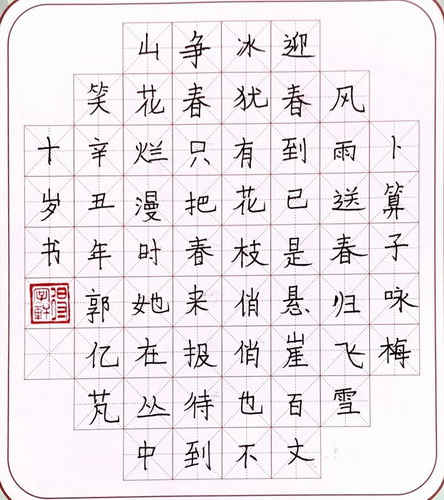 卜算子咏梅
风雨送春归飞雪
迎春到已是悬崖百丈
冰犹有花枝俏俏也不
争春只把春来报待到
山花烂漫时她在丛中
笑辛丑年郭亿芃
十岁书